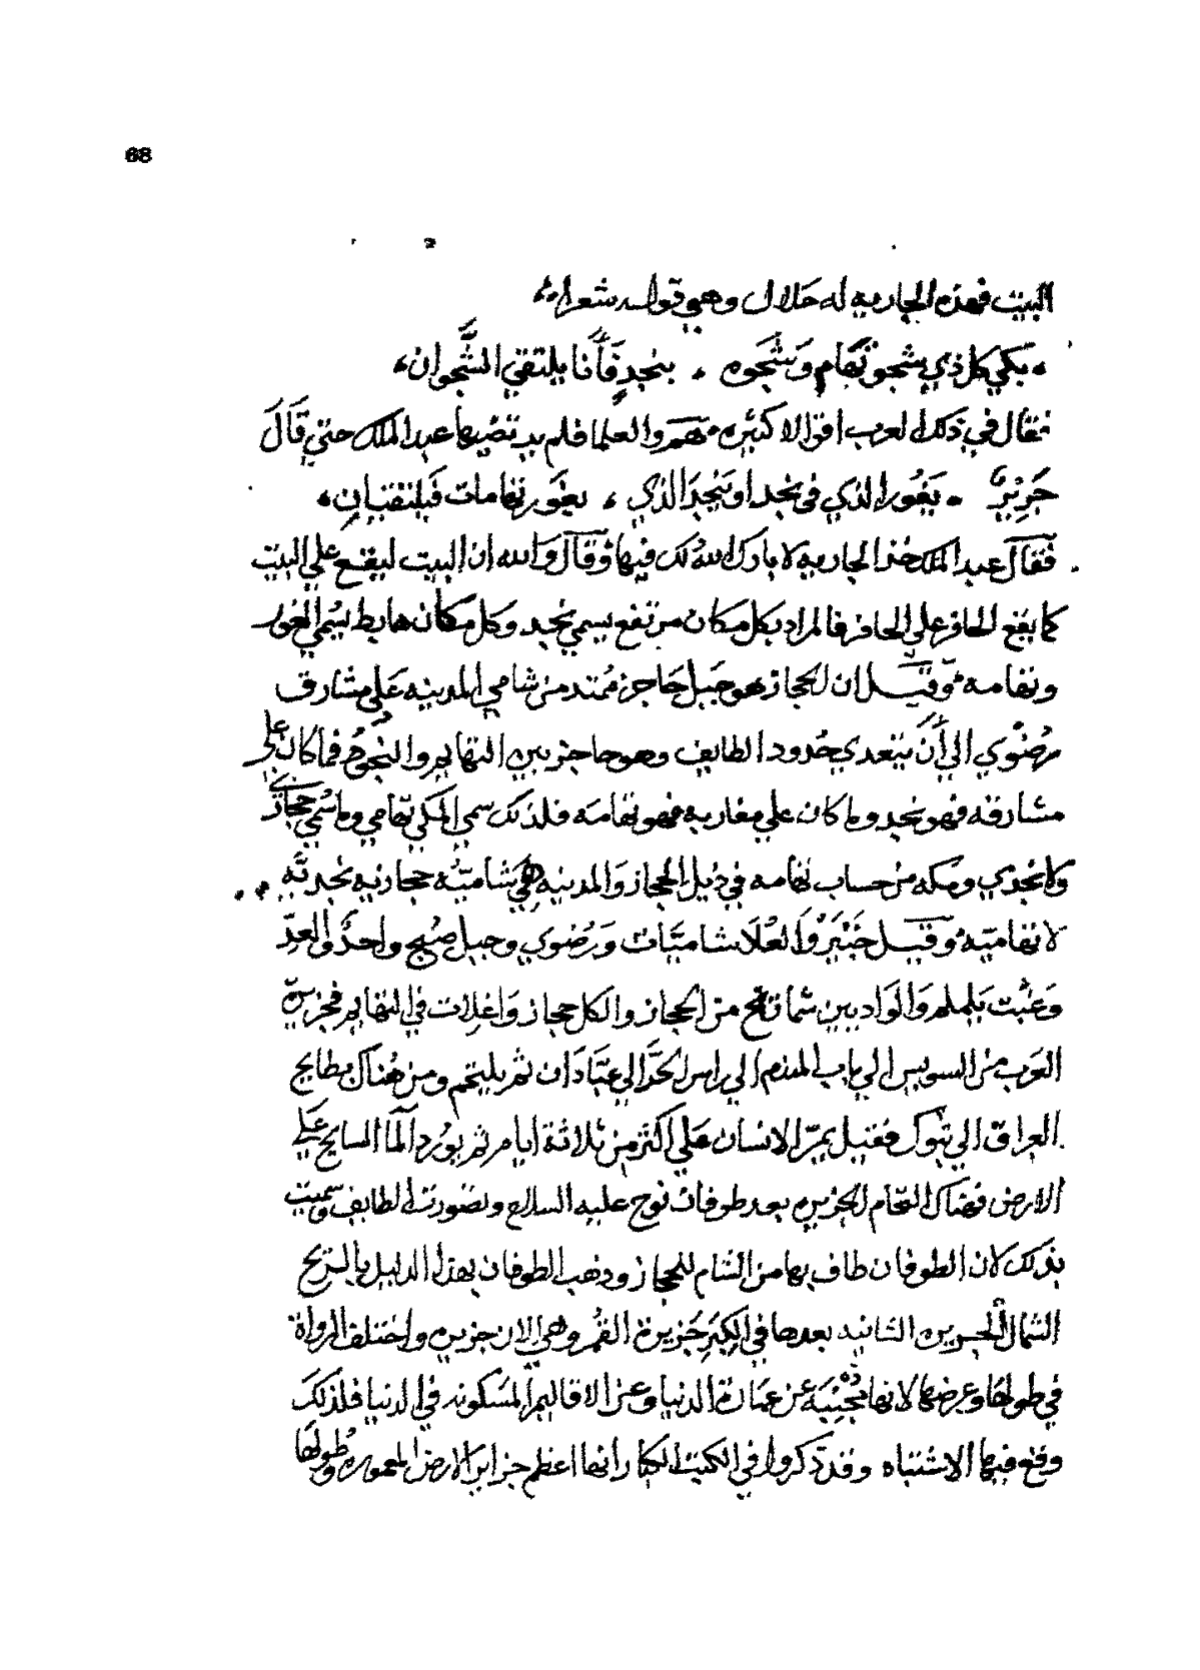 68
البيت فهذه الجاريه له حلال وهي قوله شعراء
يبكي كل ذي شجو تهام وشجوه ، بنجد فانا يلتقي الشجوان،
فقال في ذلك العرب اقوالا كثيره منهم والعلما فلم يرتضيها عبد الملك حتي قال
جرير ، يغور الذي في نجد او ينجد الذي ، بغور تهامات فيلتقيان،
فقال عبد الملك خذ الجاريه لا بارك الله لك فيها وقال والله ان البيت ليقع علي البيت
كما يقع الحافر علي الحافر فالمراد بكل مكان مرتفع يسمي نجد وكل مكان هابط يسمي الغور
وتهامه وقيل ان الحجاز هو جبل حاجز ممتد من شامي المدينه علي مشارق
رضوي الي ان يتعدي حدود الطايف وهو حاجز بين التهايم والنجود فما كان علي
مشارقه فهو نجد وما كان علي مغاربه فهو تهامه فلذلك سمي المكي تهامي وما سمي حجازي
ولا نجدي ومكه من حساب تهامه في ذيل الحجاز والمدينه هي شاميه حجازيه نجديه
لا تهاميه وقيل خيبر والعلا شاميات ورضوي وجبل صبح واحد والعد
وعشت يلملم والواديين من الحجاز والكل حجاز في التهايم فجزيرة
العرب من السويس الي باب المندم الي راس الحد الي عبادان ثم يليتحم ومن هناك بطايح
العراق الي تبوك فقيل يمر الانسان علي اكثر من ثلاثة ايام ثم يورد الما السايح علي
الارض فهناك التحام الجزيره بعد طوفان نوح عليه السلام وتصورت الطايف وسميت
بذلك لان الطوفان طاف بها من الشام للحجاز وذهب الطوفان بهذا الدليل بالريح
الشمال الجزيره الثانيه بعدها في الكبر جزيرة القمر وهي الان جزيره واختلف الرواة
في طولها وعرضها لانها مجنبة عن عمارة الدنيا وعن الاقاليم المسكونه في الدنيا فلذلك
وقع فيها الاشتباه وقد ذكروا في الكتب الكبار انها اعظم جزاير الارض المعموره وطولها